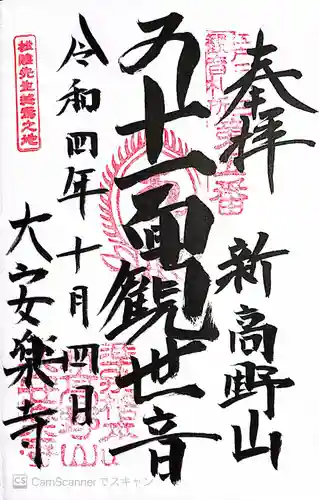 奉拝
新高野山
十一面観世音
令和四年十月四日
大安楽寺
松陰先生終焉之地
CamScanner でスキャン